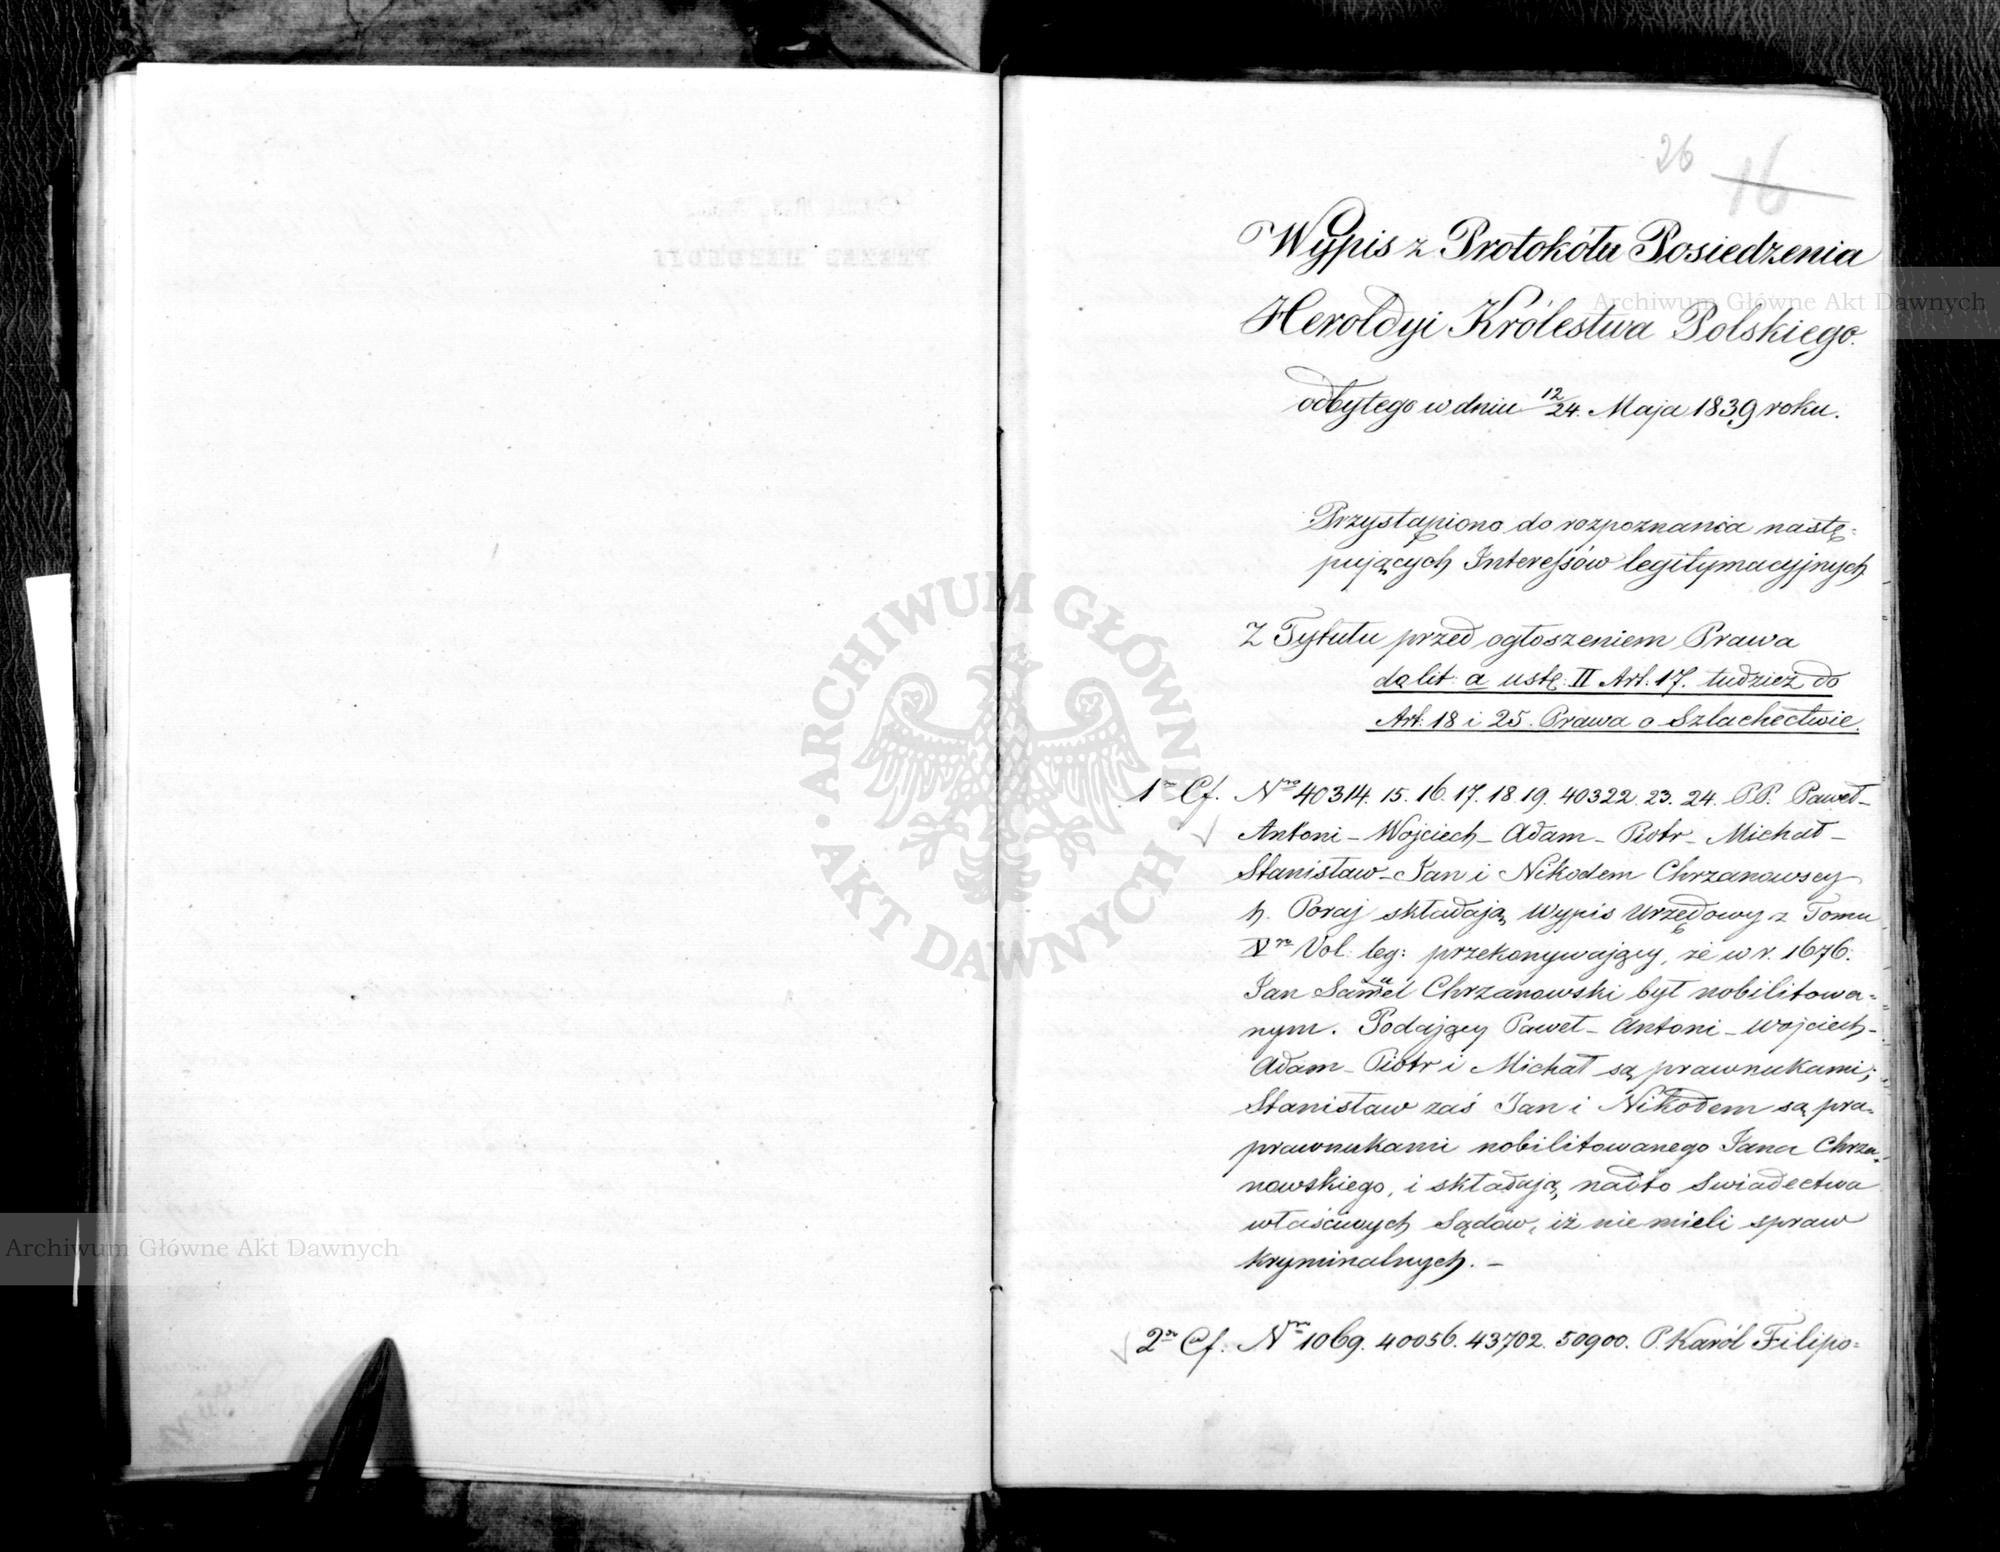 26 16
Wypis z Protokółu Posiedzenia
Heroldyi Królestwa Polskiego.
odbytego w dniu 12/24. Maja 1839 roku.
Przystąpiono do rozpoznania nastę=
pujących Interessów legitymacyjnych
Z Tytułu przed ogłoszeniem Prawa
do lit: a ustę: II Art. 17. tudzież do
Art: 18 i 25. Prawa o Szlachectwie.
1m Cf. Nro 40314. 15. 16. 17. 18. 19. 40322. 23. 24. P.P. Paweł-
Antoni - Wojciech - Adam - Piotr - Michał -
Stanisław - Jan i Nikodem Chrzanowscy
h. Poraj składają Wypis Urzędowy z Tomu
Vgo Vol: leg: przekonywający, że w r. 1676.
Jan Samuel Chrzanowski był nobilitowa=
nym. Podający Paweł - Antoni - Wojciech -
Adam - Piotr i Michał są prawnukami;
Stanisław zaś Jan i Nikodem są pra=
prawnukami nobilitowanego Jana Chrza=
nowskiego, i składają nadto Swiadectwa
właściwych Sądów, iż nie mieli spraw
kryminalnych. -
2m Cf. Nro 1069. 40056. 43702. 50900. P. Karól Filipo=
Archiwum Główne Akt Dawnych
ARCHIWUM GŁÓWNE AKT DAWNYCH
Archiwum Główne Akt Dawnych